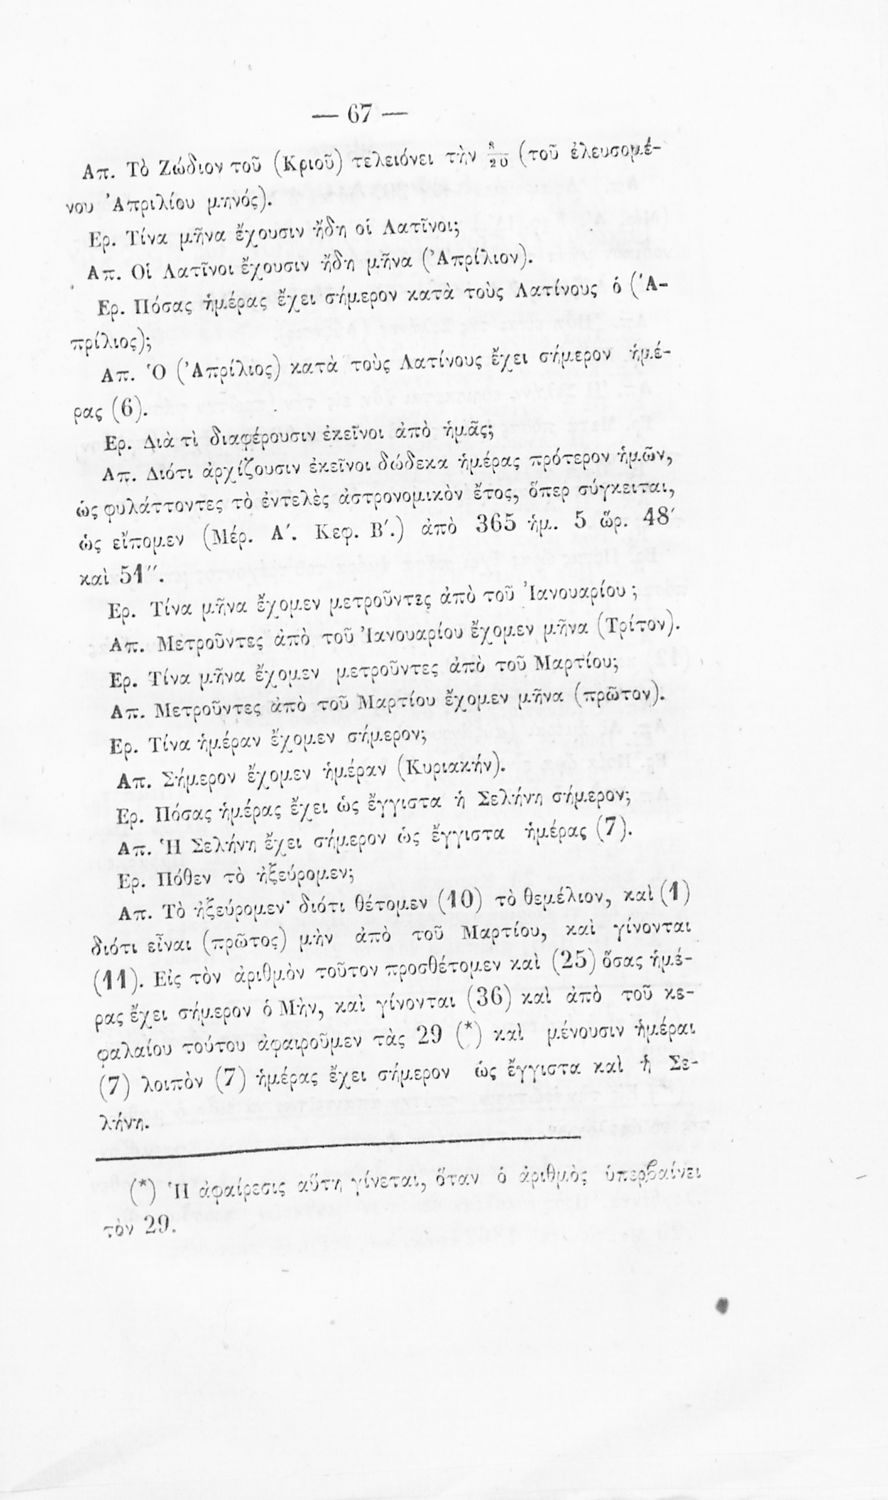 — 67 —
Απ. Τὸ Ζώδιον τοῦ (Κριοῦ) τελειόνει τὴν 8/20 (τοῦ ἐλευσομέ-
νου Ἀπριλίου μηνός).
Ερ. Τίνα μῆνα ἔχουσιν ἤδη οἱ Λατῖνοι;
Απ. Οἱ Λατῖνοι ἔχουσιν ἤδη μῆνα (Ἀπρίλιον).
Ερ. Πόσας ἡμέρας ἔχει σήμερον κατὰ τοὺς Λατίνους ὁ (Ἀ-
πρίλιος);
Απ. Ὁ (Ἀπρίλιος) κατὰ τοὺς Λατίνους ἔχει σήμερον ἡμέ-
ρας (6).
Ερ. Διὰ τὶ διαφέρουσιν ἐκεῖνοι ἀπὸ ἡμᾶς;
Απ. Διότι ἀρχίζουσιν ἐκεῖνοι δώδεκα ἡμέρας πρότερον ἡμῶν,
ὡς φυλάττοντες τὸ ἐντελὲς ἀστρονομικὸν ἔτος, ὅπερ σύγκειται,
ὡς εἴπομεν (Μέρ. Α΄. Κεφ. Β΄.) ἀπὸ 365 ἡμ. 5 ὥρ. 48΄
καὶ 51΄΄.
Ερ. Τίνα μῆνα ἔχομεν μετροῦντες ἀπὸ τοῦ Ἰανουαρίου;
Απ. Μετροῦντες ἀπὸ τοῦ Ἰανουαρίου ἔχομεν μῆνα (Τρίτον).
Ερ. Τίνα μῆνα ἔχομεν μετροῦντες ἀπὸ τοῦ Μαρτίου;
Απ. Μετροῦντες ἀπὸ τοῦ Μαρτίου ἔχομεν μῆνα (πρῶτον).
Ερ. Τίνα ἡμέραν ἔχομεν σήμερον;
Απ. Σήμερον ἔχομεν ἡμέραν (Κυριακήν).
Ερ. Πόσας ἡμέρας ἔχει ὡς ἔγγιστα ἡ Σελήνη σήμερον;
Απ. Ἡ Σελήνη ἔχει σήμερον ὡς ἔγγιστα ἡμέρας (7).
Ερ. Πόθεν τὸ ἠξεύρομεν;
Απ. Τὸ ἠξεύρομεν· διότι θέτομεν (10) τὸ θεμέλιον, καὶ (1)
διότι εἶναι (πρῶτος) μὴν ἀπὸ τοῦ Μαρτίου, καὶ γίνονται
(11). Εἰς τὸν ἀριθμὸν τοῦτον προσθέτομεν καὶ (25) ὅσας ἡμέ-
ρας ἔχει σήμερον ὁ Μὴν, καὶ γίνονται (36) καὶ ἀπὸ τοῦ κε-
φαλαίου τούτου ἀφαιροῦμεν τὰς 29 (*) καὶ μένουσιν ἡμέραι
(7) λοιπὸν (7) ἡμέρας ἔχει σήμερον ὡς ἔγγιστα καὶ ἡ Σε-
λήνη.
(*) Ἡ ἀφαίρεσις αὕτη γίνεται, ὅταν ὁ ἀριθμὸς ὑπερβαίνει
τὸν 29.